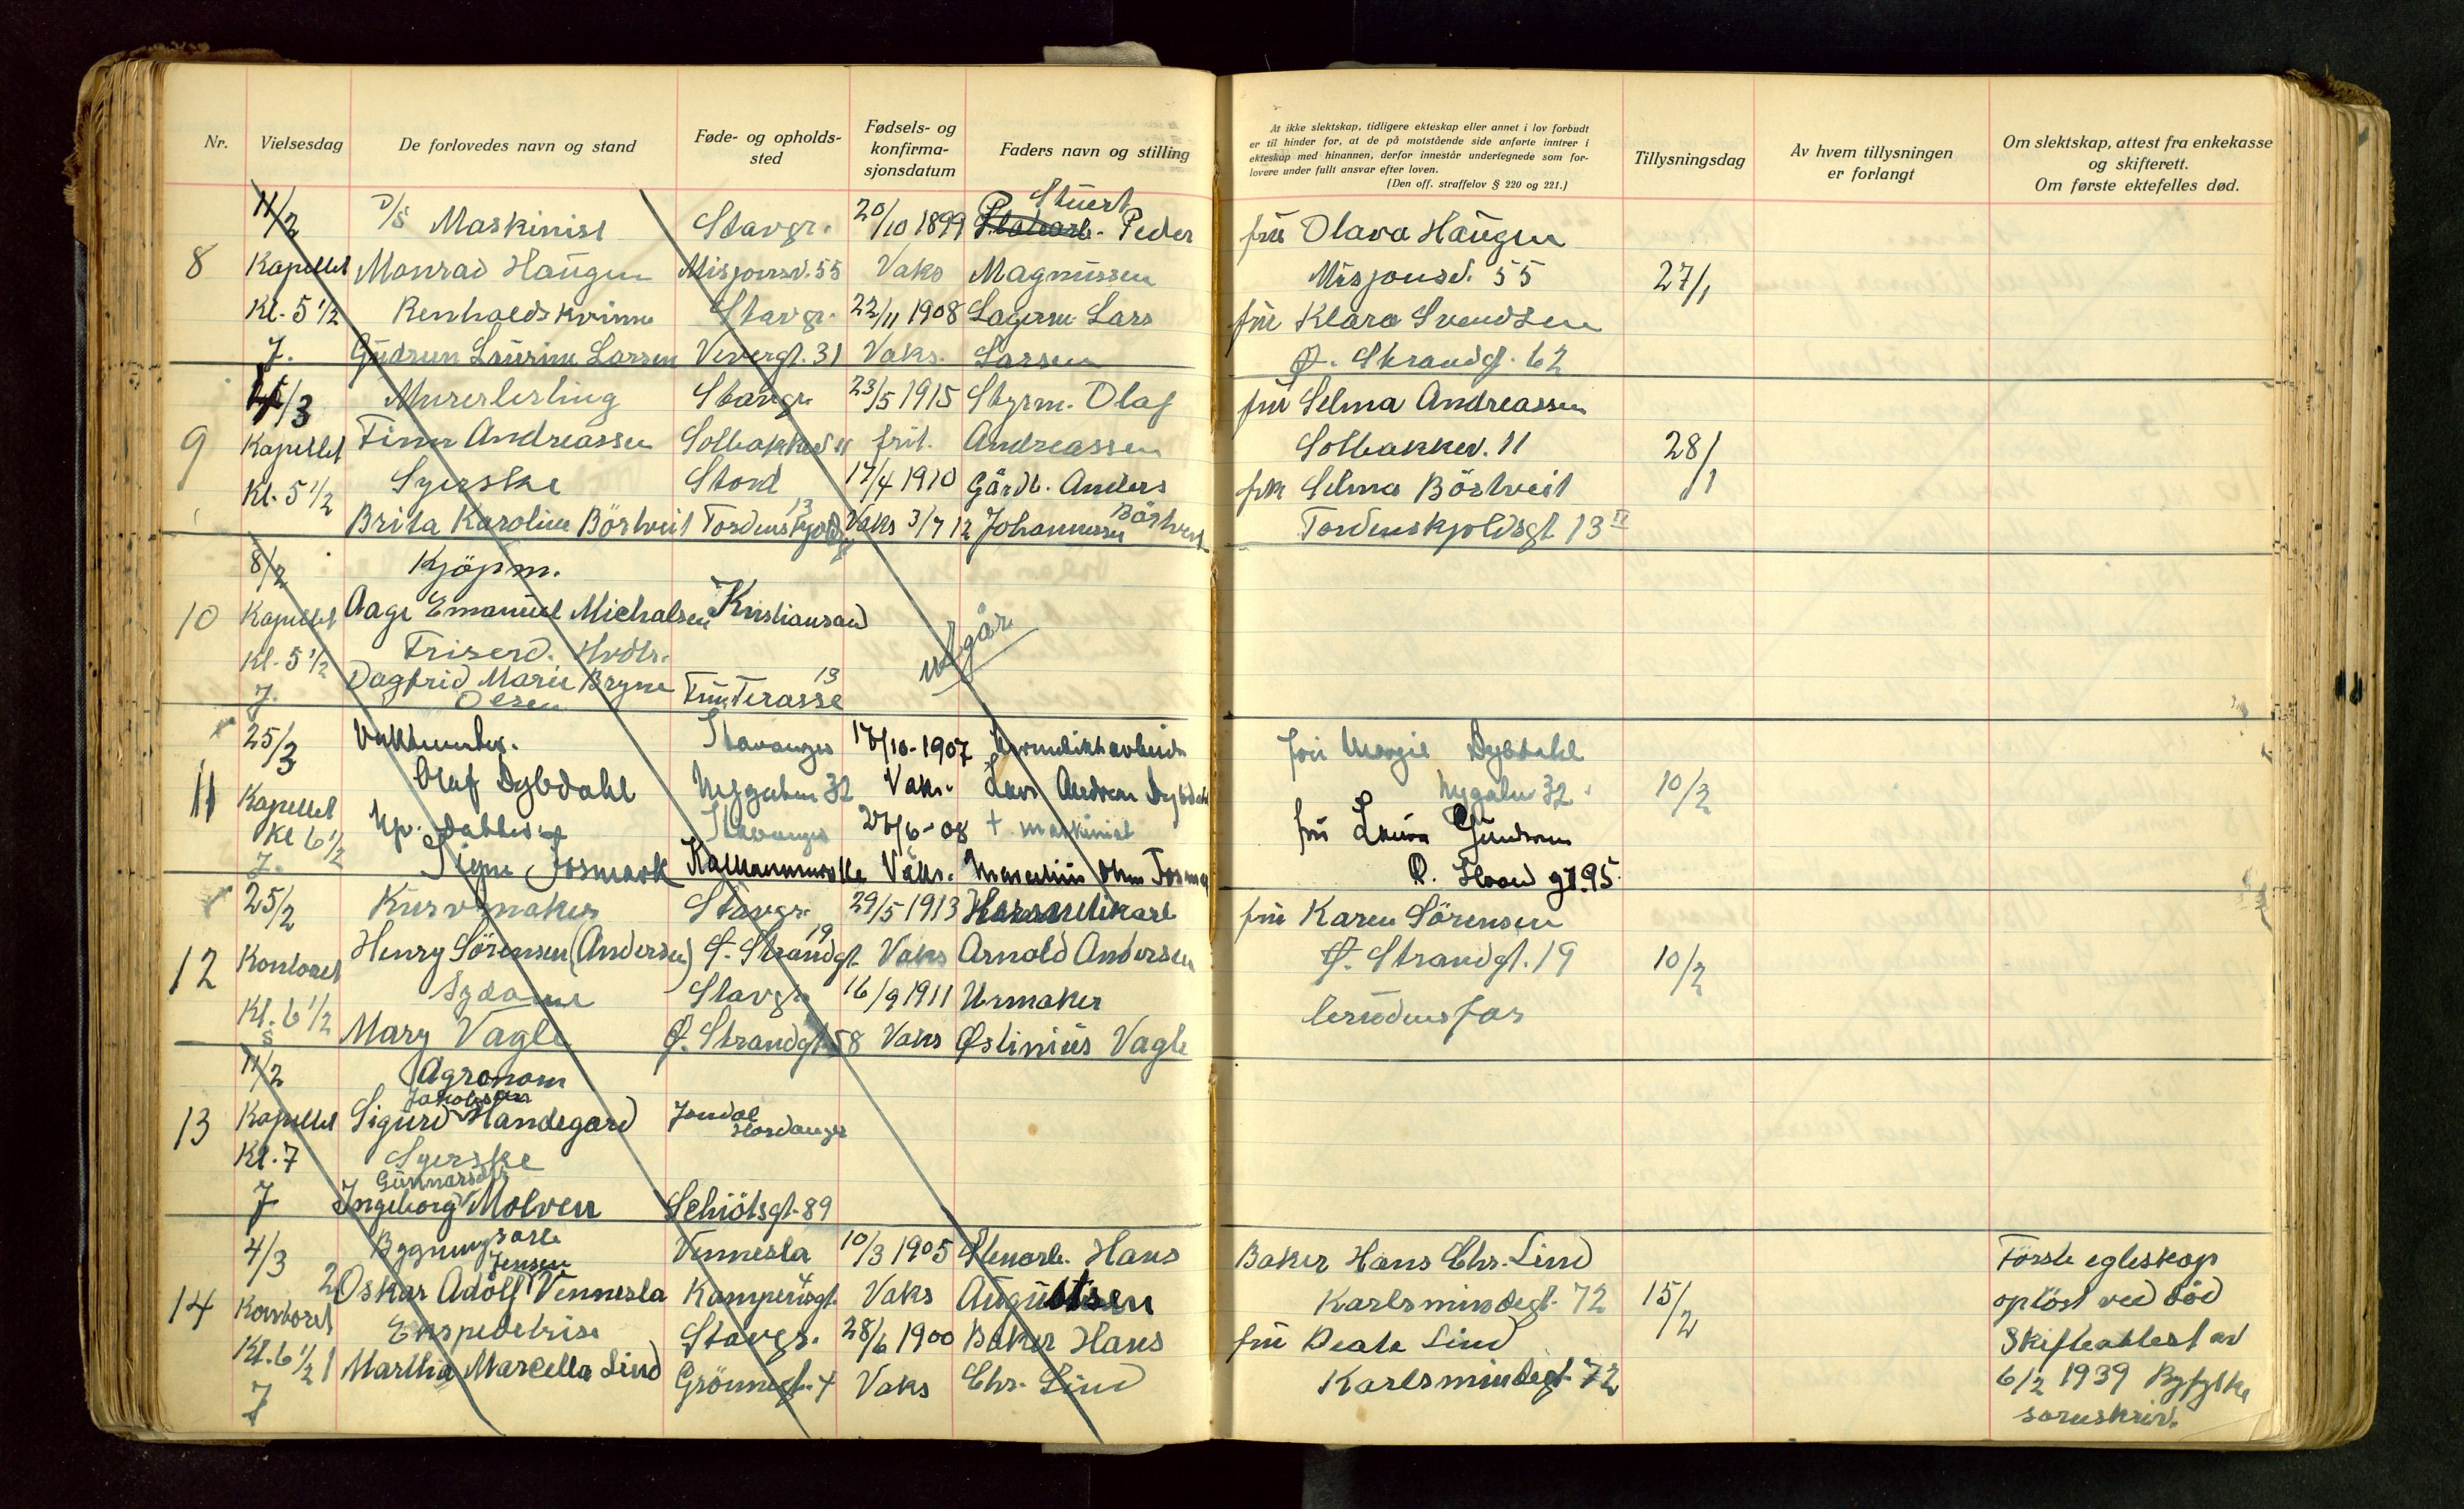 Nr.
Vielsesdag
De forlovedes navn og stand
Føde- og opholds-
sted
Fødsels- og
konfirma-
sjonsdatum
Faders navn og stilling
At ikke slektskap, tidligere ekteskap eller annet i lov forbudt
er til hinder for, at de på motstående side anførte inntrer i
ekteskap med hinannen, derfor innestår undertegnede som for-
lovere under fullt ansvar efter loven.
(Den off. straffelov § 220 og 221.)
Tillysningsdag
Av hvem tillysningen
er forlangt
Om slektskap, attest fra enkekasse
og skifterett.
Om første ektefelles død.
Stuert
11/2 D/S Maskinist Stavgr. 20/10 1899 Peder fru Olava Haugen
8 Kapellet Monrad Haugen Misjonsv. 55 Vaks Magnussen Misjonsv. 55 27/1
Kl. 5 1/2 Renholdskvinne Stavgr. 22/11 1908 Lagerm. Lars fru Klara Svendsen
J. Gudrun Laurine Larsen Vevergt. 31 Vaks. Larsen Ø. Strandgt. 62
/3 Murerlærling Stavgr. 23/5 1915 Styrm. Olaf fru Selma Andreassen
9 Kapellet Finn Andreassen Solbakkev. 11 frit. Andreassen Solbakkev. 11 28/1
Kl. 5 1/2 Syerske Stord 17/4 1910 Gårdb. Anders frk Selma Börtveit
Brita Karoline Börtveit Tordenskjoldsgt 13 Vaks 3/7 12 Johannessen Börtveit Tordenskjoldsgt. 13 II
8/2 Kjöpm.
10 Kapellet Aage Emanuel Michalsen Kristiansand
Kl. 5 1/2 Friserd. Hvdts.
J. Dagfrid Marie Bryne Olsen Frue Terasse 13
utgår
25/3 Stavanger 17/10-1907 Hermetikkarbeider fru Margit Dybdahl
11 Kapellet Olaf Dybdahl Nygaten 32 Vaks. Lars Andreas Dybdahl Nygaten 32 10/2
Kl 6 1/2 Stavanger 26/6-08 + maskinist fru Laura Gundersen
J. Signe Josmark Vaks. Ø. Strand gt. 95
25/2 Kurvmaker Stavgr. 29/5 1913 Hermetikarb fru Karen Sörensen
12 Kontoret Henry Sörensen (Andersen) Ø. Strandgt. 19 Vaks Arnold Andersen Ø. Strandgt. 19 10/2
Kl. 6 1/2 Sydame Stavgr. 16/9 1911 Urmaker brudens far
S Mary Vagle Ø. Strandgt. 58 Vaks Østinius Vagle
11/2 Agronom
13 Kapellet Sigurd Jakobsen Handegard Jondal Hardanger
Kl. 7 Syerske
J Ingeborg Gunnarsdtr Molven Schiötsgt. 89
4/3 Bygningsarb Vennesla 10/3 1905 Stenarb. Hans Baker Hans Chr. Lind Förste egteskap
14 Kontoret 2 Oskar Adolf Jensen Vennesla Kampensgt. 4 Vaks Augustsen Karlsmindegt. 72 15/2 oplöst ved död
Kl. 6 1/2 Ekspeditrise Stavgr. 28/6 1900 Baker Hans fru Beate Lind Skifteattest av
J 1 Martha Marcella Lind Grönnegt. 4 Vaks Chr. Lind Karlsmindegt. 72 6/2 1939 Ryfylke
sorenskriv.